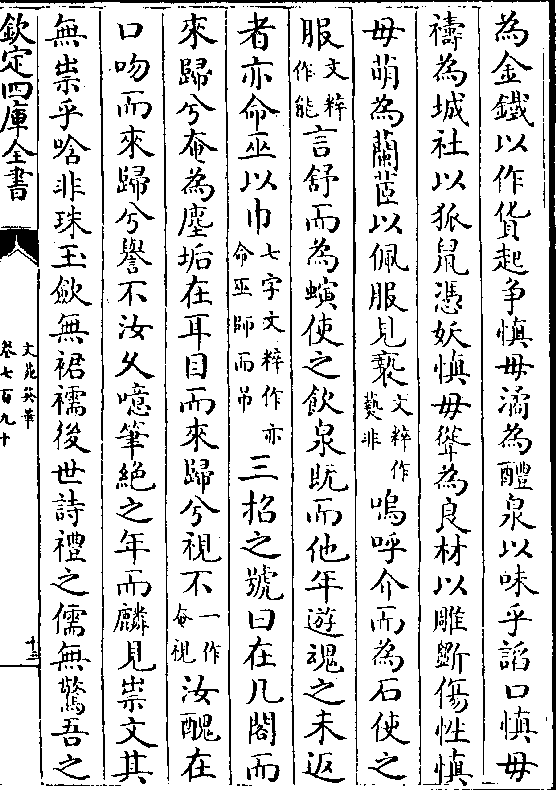 為金鐵以作貨起争慎毋潏為醴泉以味乎謟口慎毋
禱為城社以狐䑕憑妖慎毋聳為良材以雕斵傷性慎
毋萌為蘭茝以佩服見褻文粹作藝非嗚呼介而為石使之
服文粹作能言舒而為螾使之飲泉既而他年遊魂之未返
者亦命巫以巾七字文粹作亦命巫師而吊三招之號曰在几閣而
來歸兮奄為塵垢在耳目而來歸兮視不一作奄視汝醜在
口吻而來歸兮譽不汝久噫筆絶之年而麟見祟文其
無祟乎啥非珠玉歛無裙襦後世詩禮之儒無驚吾之
欽定四庫全書
文苑英華
卷七百九十
十三